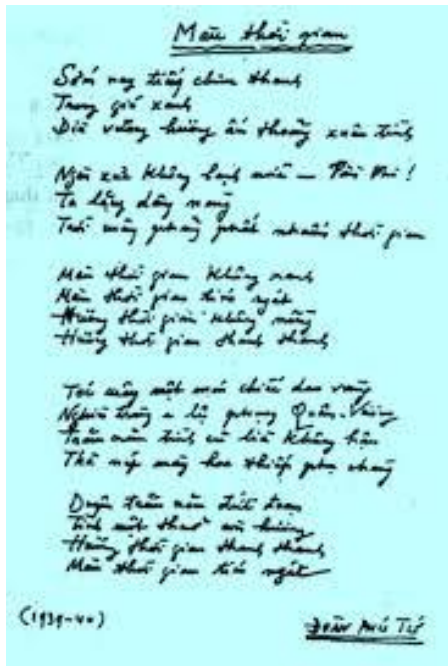 Màu thời gian
Sớm nay tiếng chim thanh
Trong gió xanh
Dìu vương hương ấm thoảng xuân tình
Ngàn xưa không lạnh nữa – Tần Phi!
Ta lặng dâng nàng
Trời mây phảng phất nhuốm thời gian
Màu thời gian không xanh
Màu thời gian tím ngát
Hương thời gian không nồng
Hương thời gian thanh thanh
Tóc mây một món chiếc dao vàng
Nghìn trùng e lệ phụng Quân Vương
Trăm năm tình cũ lìa không hận
Thà nép mày hoa thiếp phụ chàng
Duyên trăm năm đứt đoạn
Tình một thuở còn hương
Hương thời gian thanh thanh
Màu thời gian tím ngát
(1939-40)
Đoàn Phú Tứ